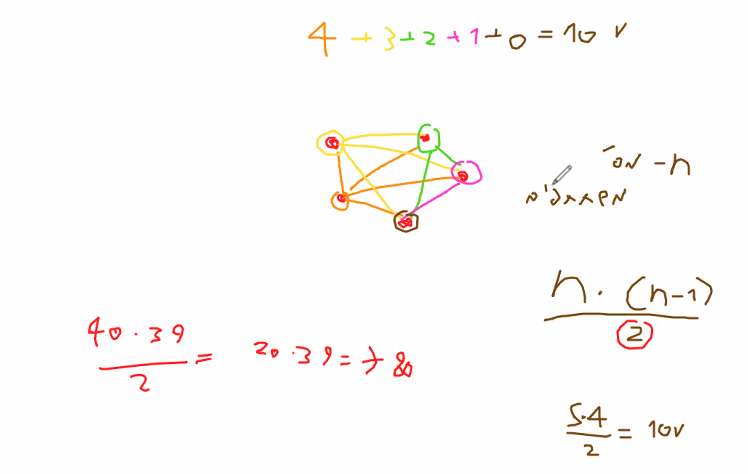 4 + 3 + 2 + 1 + 0 = 10 ✓
n - מס'
משתתפים
n · (n-1)
2
40 · 39
2
= 20 · 39 = 780
5·4
2
= 10 ✓